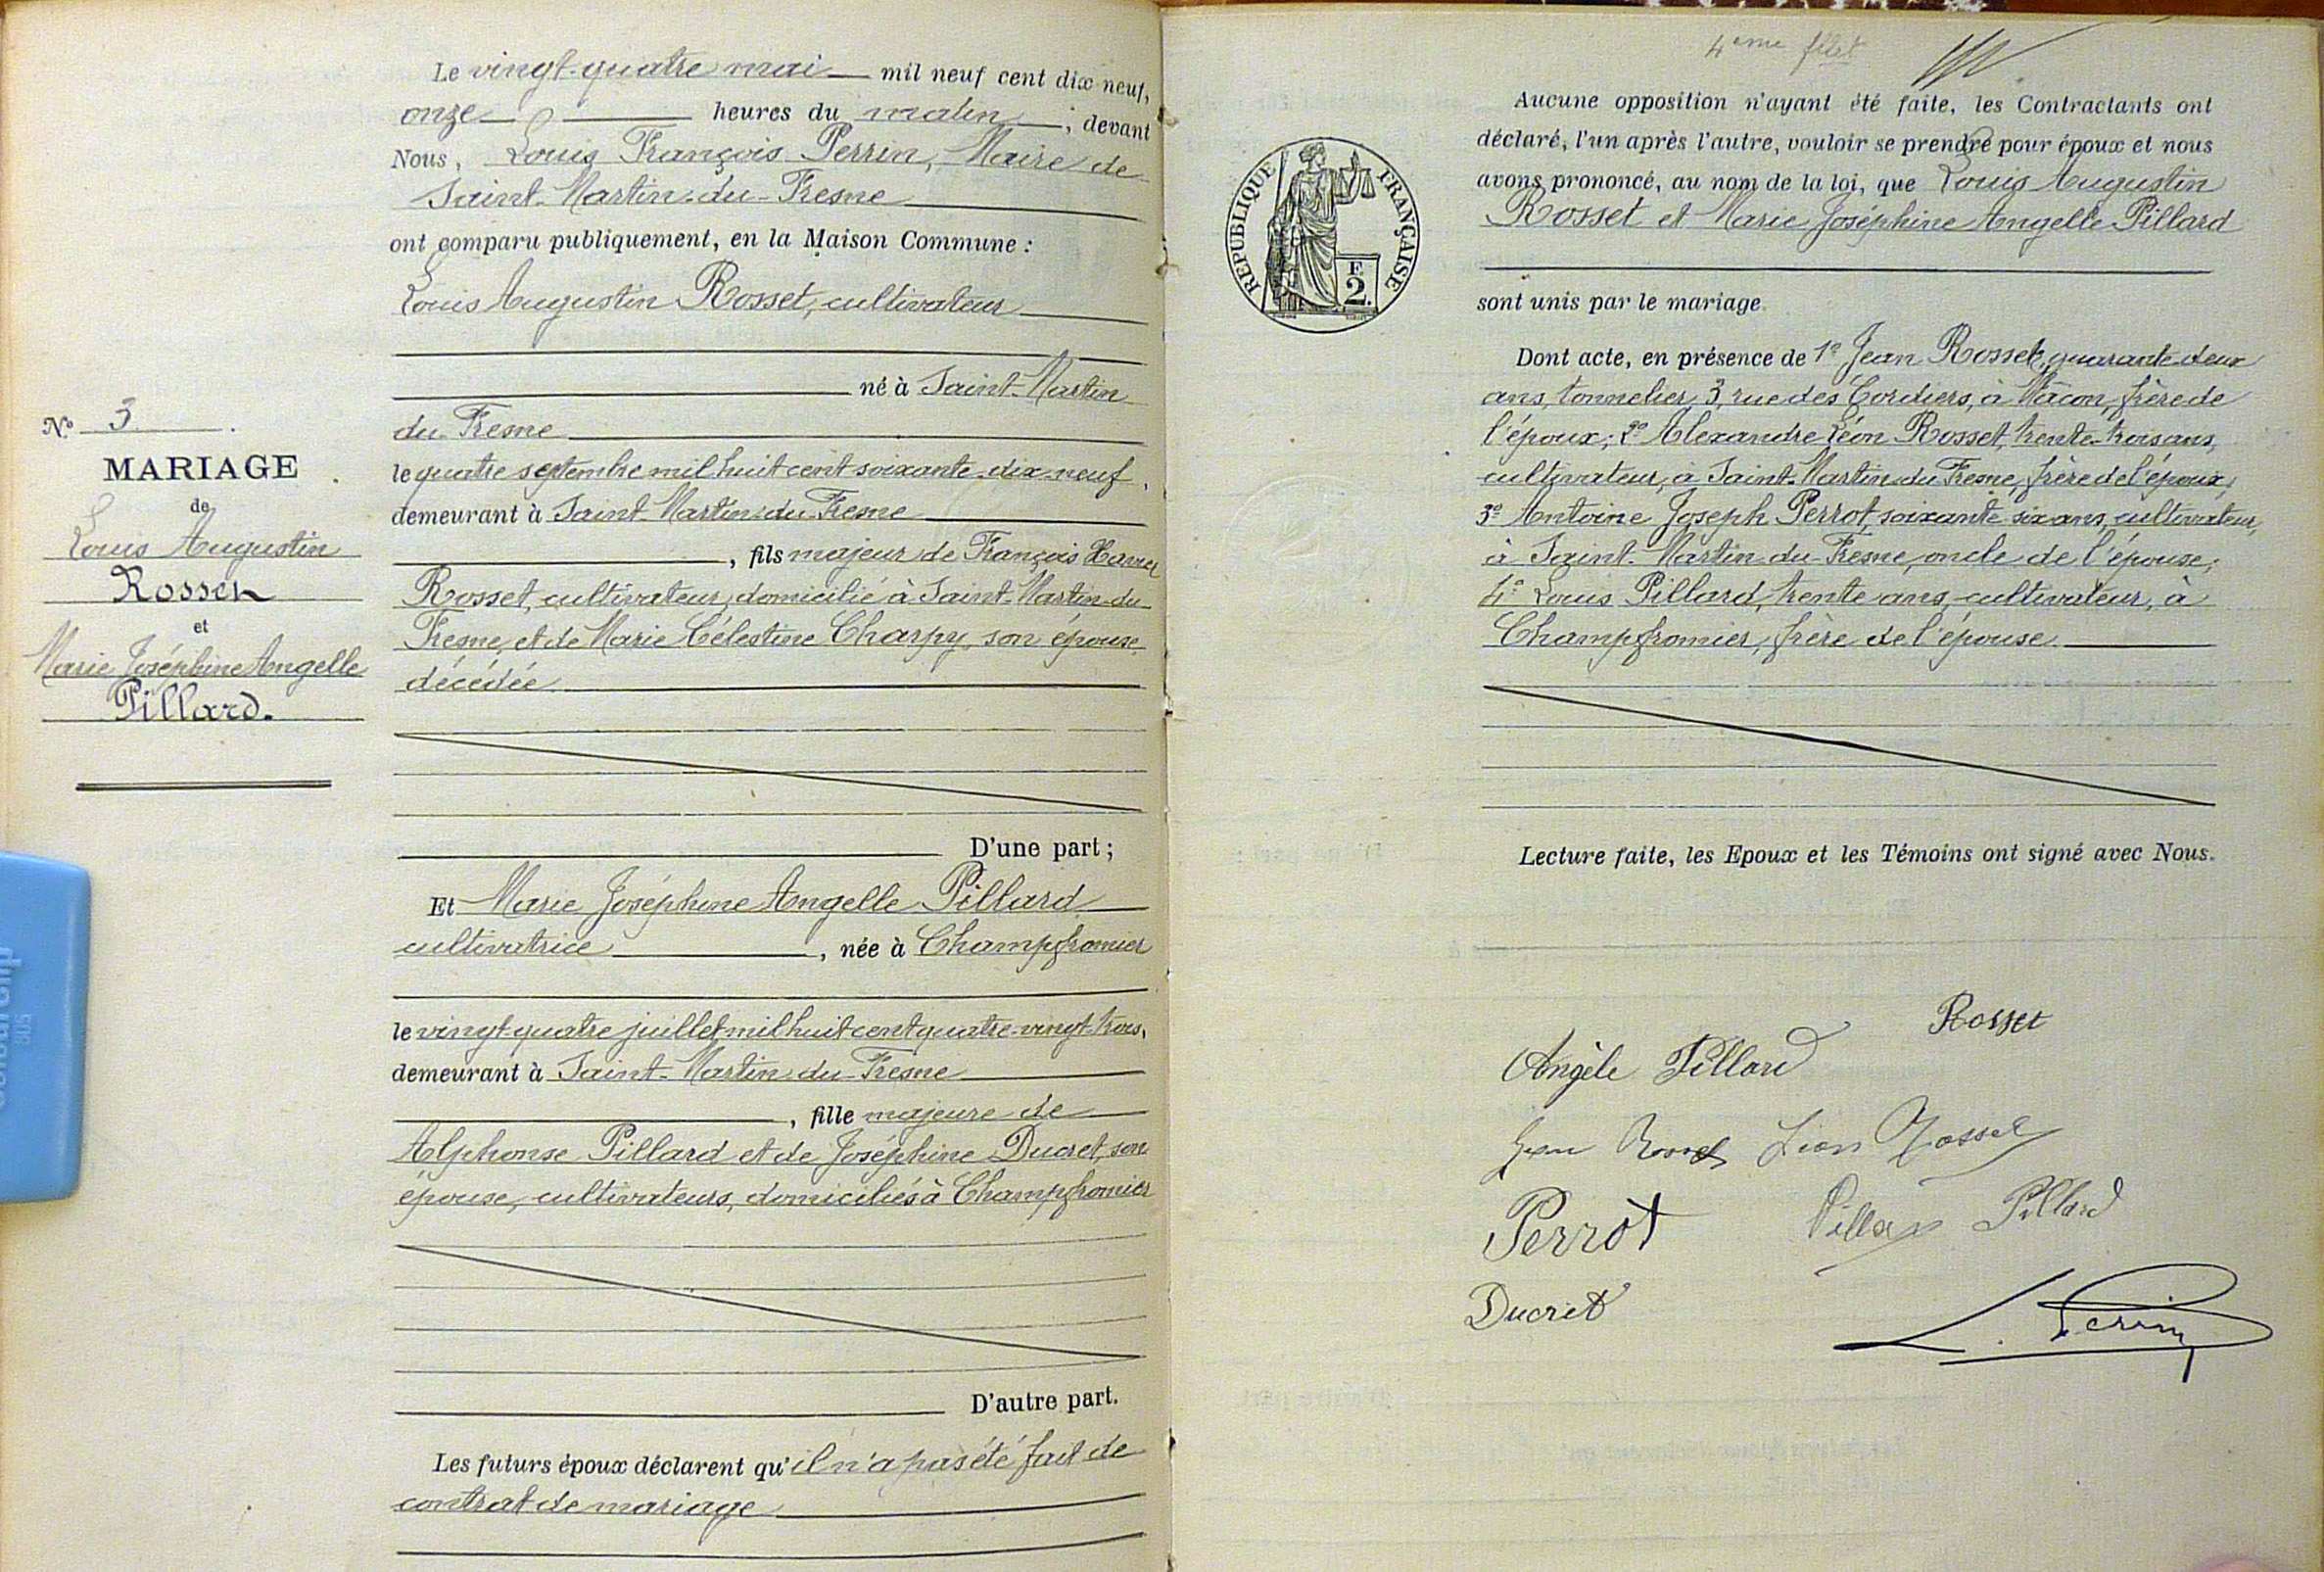 Le vingt-quatre mai mil neuf cent dix-neuf,
onze heures du matin ; devant
Nous, Louis François Perrin, Maire de
Saint-Martin-du-Fresne
ont comparu publiquement, en la Maison Commune :
Louis Augustin Rosset, cultivateur
né à Saint-Martin
du-Fresne
le quatre septembre mil huit cent soixante-dix-neuf,
demeurant à Saint-Martin-du-Fresne
, fils majeur de François Xavier
Rosset, cultivateur, domicilié à Saint-Martin-du-
Fresne, et de Marie Célestine Charpy, son épouse
décédée
D'une part ;
Et Marie Joséphine Angelle Pillard
cultivatrice , née à Champfromier
le vingt-quatre juillet mil huit cent quatre-vingt-trois,
demeurant à Saint-Martin-du-Fresne
, fille majeure de
Alphonse Pillard et de Joséphine Ducret, son
épouse, cultivateurs, domiciliés à Champfromier
D'autre part.
Les futurs époux déclarent qu'il n'a pas été fait de
contrat de mariage
N° 3
MARIAGE
de
Louis Augustin
Rosset
et
Marie Joséphine Angelle
Pillard.
4eme
RÉPUBLIQUE FRANÇAISE
F.
2.
Aucune opposition n'ayant été faite, les Contractants ont
déclaré, l'un après l'autre, vouloir se prendre pour époux et nous
avons prononcé, au nom de la loi, que Louis Augustin
Rosset et Marie Joséphine Angelle Pillard
sont unis par le mariage.
Dont acte, en présence de 1° Jean Rosset, quarante-deux
ans, tonnelier, 3, rue des Cordiers, à Mâcon, frère de
l'époux ; 2° Alexandre Léon Rosset, trente-trois ans,
cultivateur, à Saint-Martin-du-Fresne, frère de l'époux,
3° Antoine Joseph Perrot, soixante six ans, cultivateur,
à Saint-Martin-du-Fresne, oncle de l'épouse ;
4° Louis Pillard, trente ans, cultivateur, à
Champfromier, frère de l'épouse.
Lecture faite, les Epoux et les Témoins ont signé avec Nous.
Rosset
Angèle Pillard
Jean Rosset Léon Rosset
Perrot Pillard Pillard
Ducret
L. Perrin